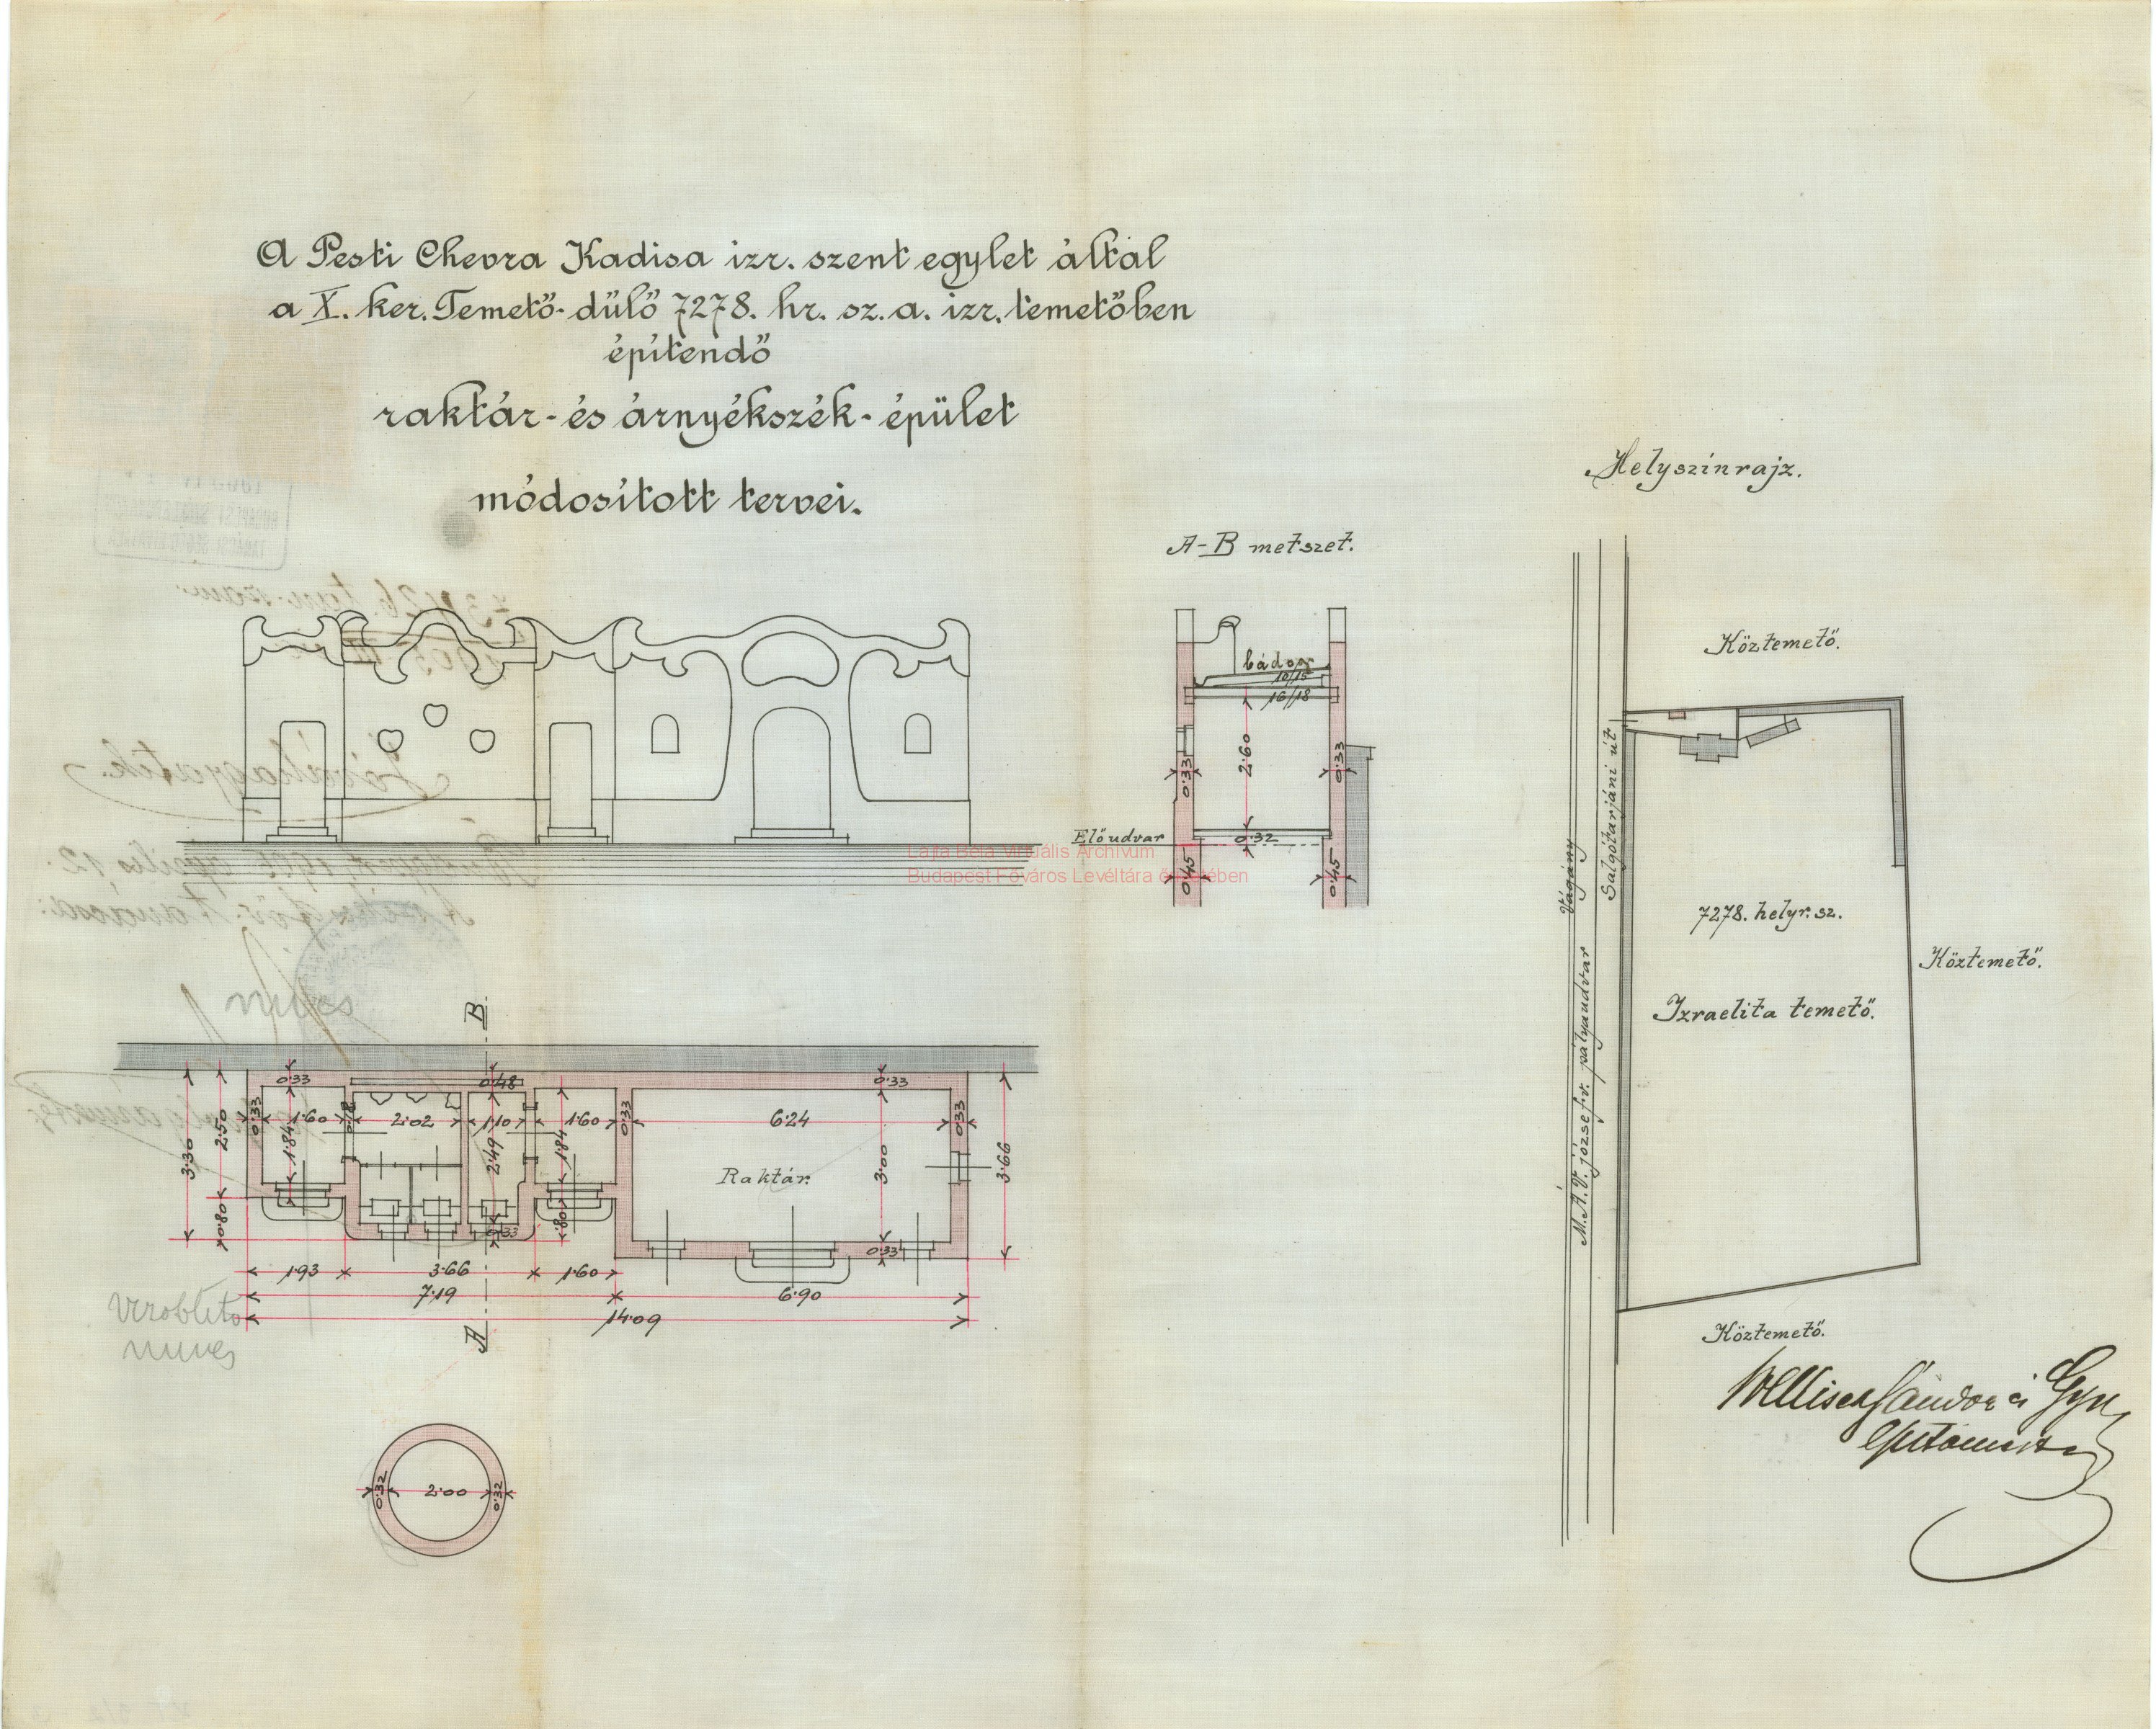 A Pesti Chevra Kadisa izr. szent egylet által
a X. ker. Temető-dűlő 7278. hr. sz. a. izr. temetőben
építendő
raktár- és árnyékszék- épület
módosított tervei.
A-B metszet.
bádog
10/15
16/18
2·60
0·33
0·33
Előudvar
0·32
0·45
0·45
Lajta Béla Virtuális Archívum
Budapest Főváros Levéltára
Helyszínrajz.
Köztemető.
Salgótarjáni út
Vágány
M.Á.V. józsefv. pályaudvar
7278. helyr. sz.
Izraelita temető.
Köztemető.
Köztemető.
B
0·33
0·48
0·33
0·33
1·60
2·02
1·10
1·60
0·33
6·24
0·33
3·30
2·50
1·84
2·49
1·84
Raktár.
3·00
3·66
0·80
·80
0·33
0·33
1·93
3·66
1·60
7·19
6·90
14·09
A
0·32
2·00
0·32
Sándor és